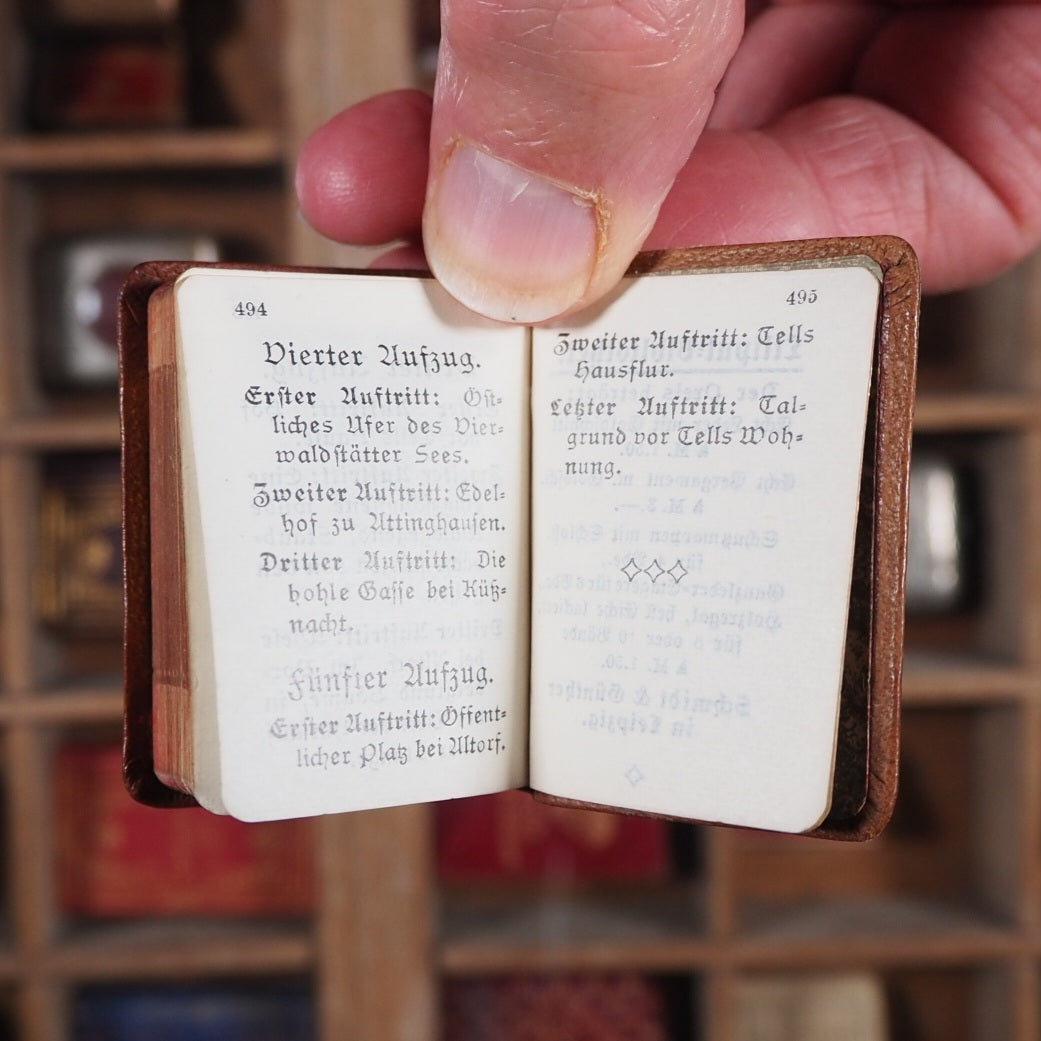 494
Vierter Aufzug.
Erſter Auftritt: Öſt-
liches Ufer des Vier-
waldſtätter Sees.
Zweiter Auftritt: Edel-
hof zu Attinghauſen.
Dritter Auftritt: Die
hohle Gaſſe bei Küß-
nacht.
Fünfter Aufzug.
Erſter Auftritt: Öffent-
licher Platz bei Altorf.
495
Zweiter Auftritt: Tells
Hausflur.
Letzter Auftritt: Tal-
grund vor Tells Woh-
nung.